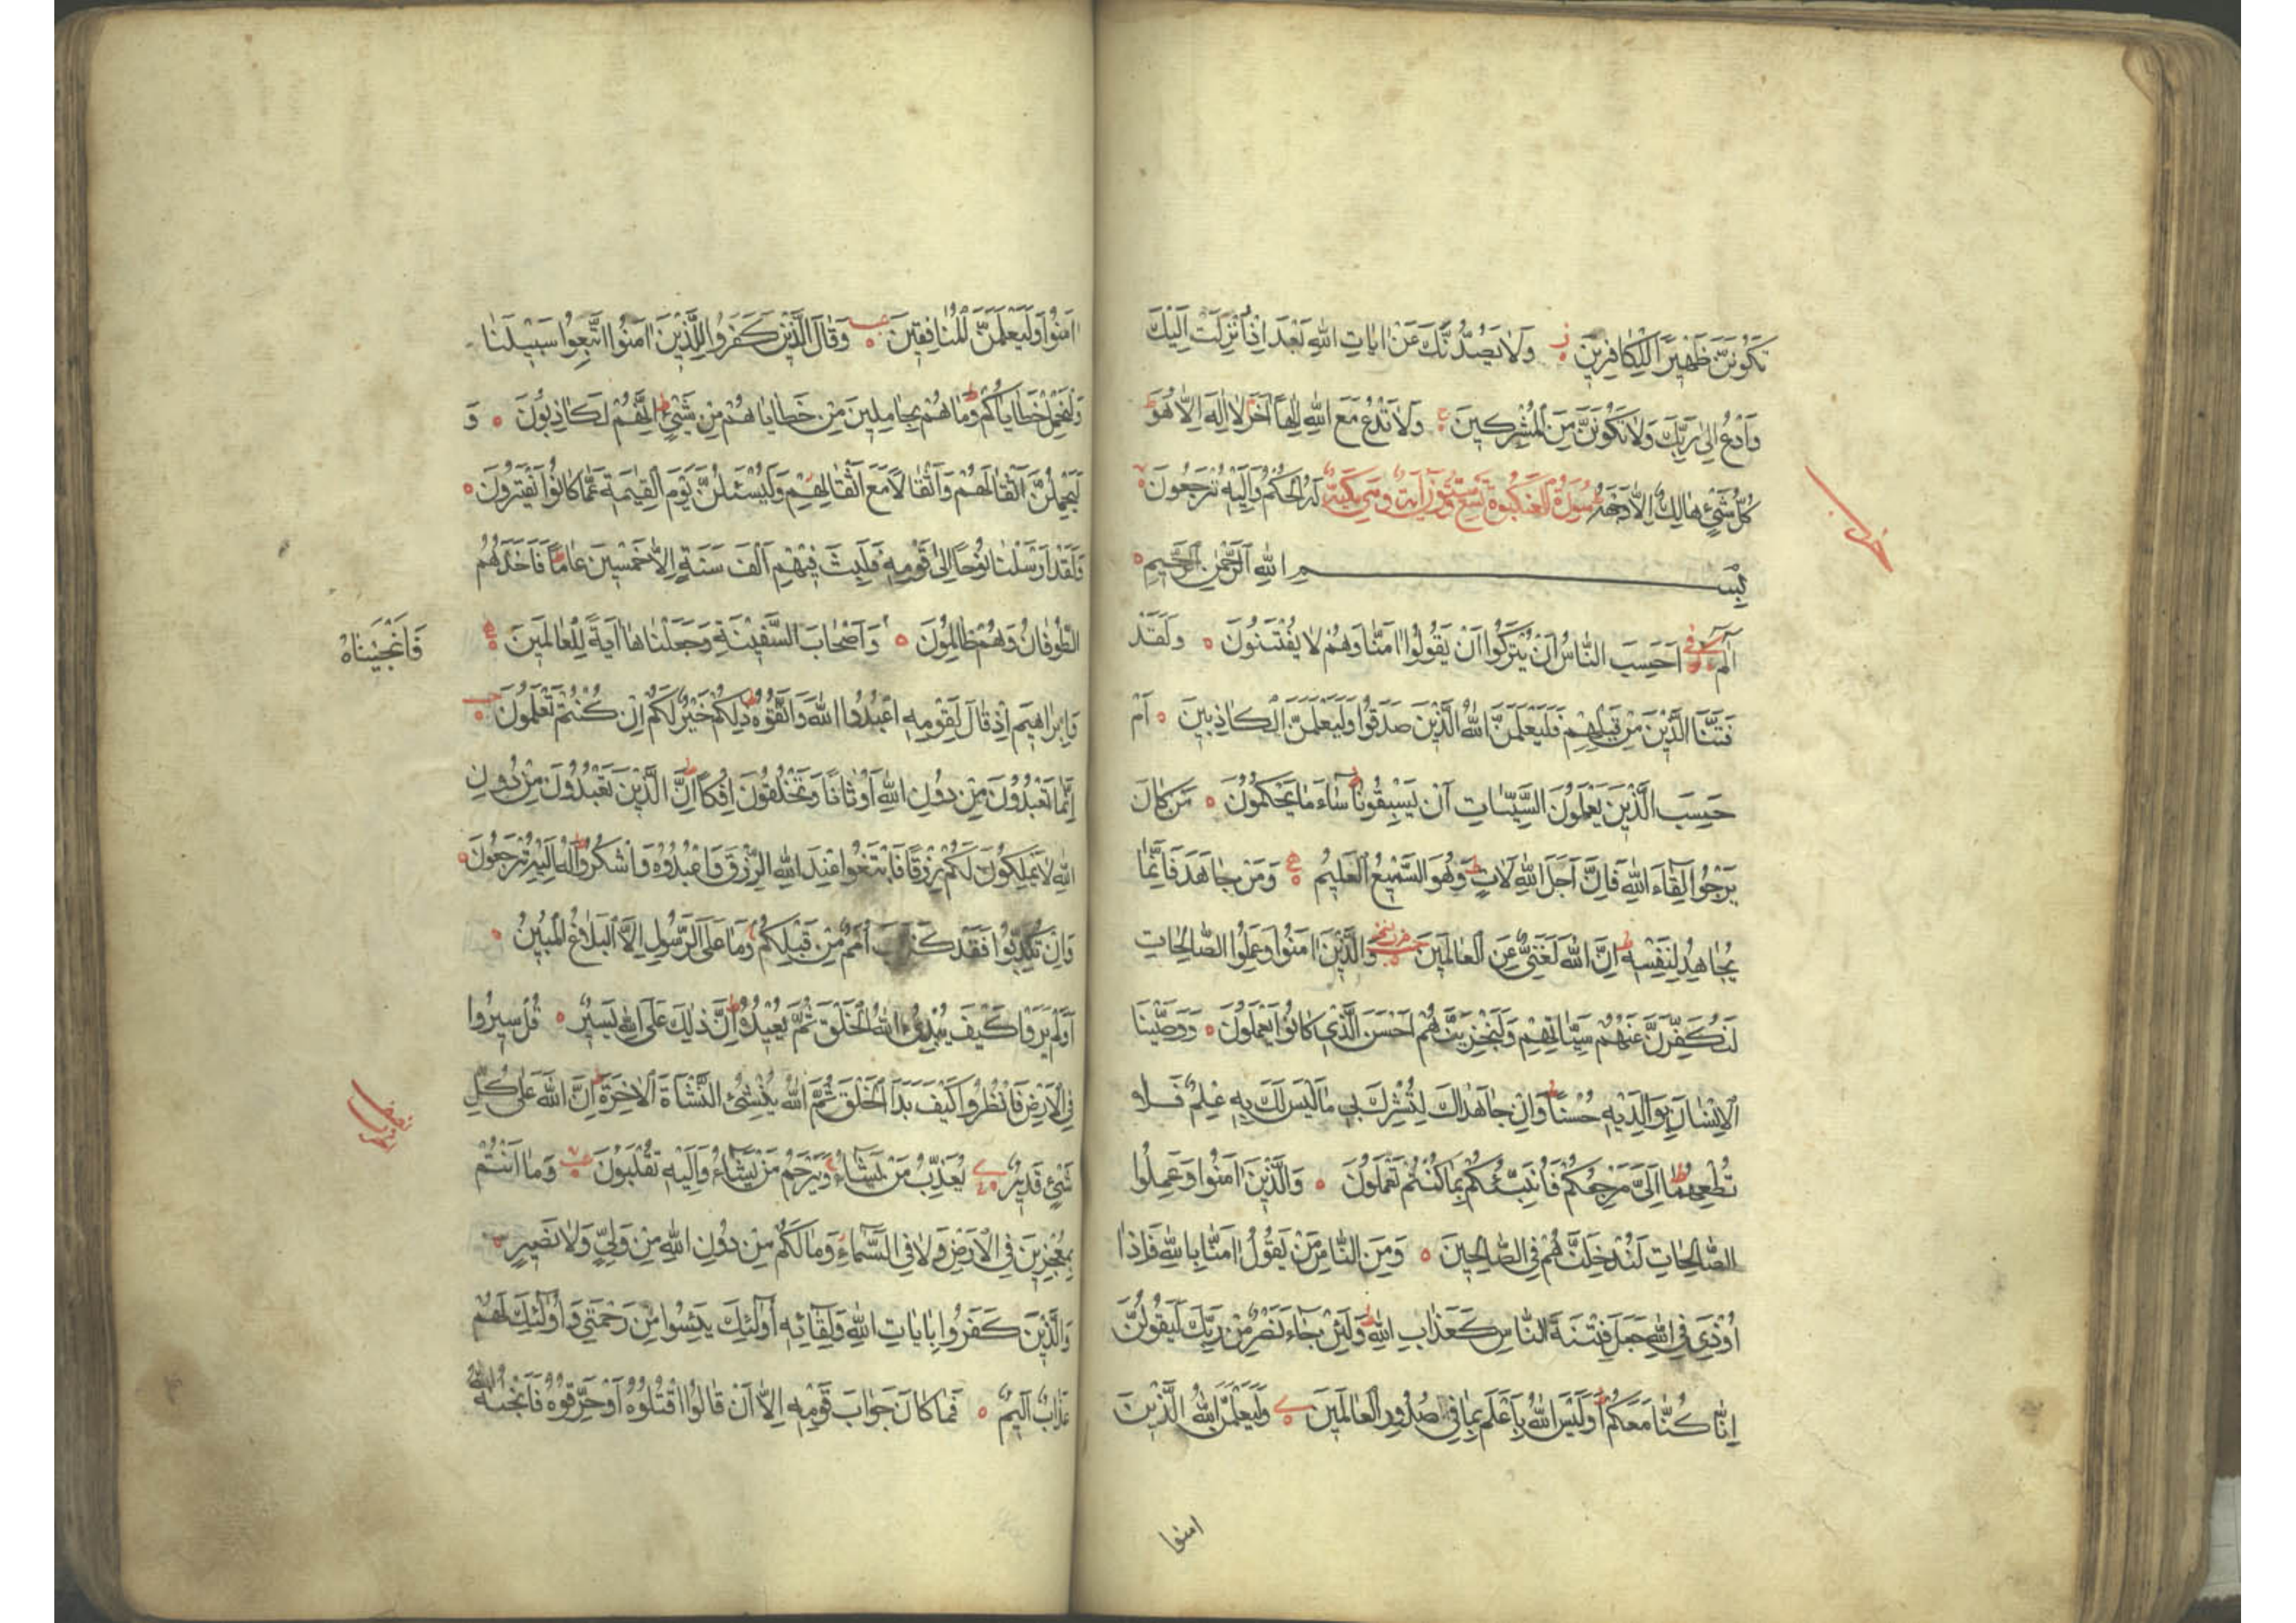 تَكُونَنَّ ظَهِيرًا لِلْكَافِرِينَ وَلَا يَصُدُّنَّكَ عَنْ اٰيَاتِ اللّٰهِ بَعْدَ اِذْ اُنْزِلَتْ اِلَيْكَ
وَادْعُ اِلٰى رَبِّكَ وَلَا تَكُونَنَّ مِنَ الْمُشْرِكِينَ وَلَا تَدْعُ مَعَ اللّٰهِ اِلٰهًا اٰخَرَ لَا اِلٰهَ اِلَّا هُوَ
كُلُّ شَيْءٍ هَالِكٌ اِلَّا وَجْهَهُ سُورَةُ الْعَنْكَبُوتِ تِسْعٌ وَسِتُّونَ اٰيَةً وَهِيَ مَكِّيَّةٌ لَهُ الْحُكْمُ وَاِلَيْهِ تُرْجَعُونَ
بِسْمِ اللّٰهِ الرَّحْمٰنِ الرَّحِيمِ
الٓمٓ اَحَسِبَ النَّاسُ اَنْ يُتْرَكُوا اَنْ يَقُولُوا اٰمَنَّا وَهُمْ لَا يُفْتَنُونَ وَلَقَدْ
فَتَنَّا الَّذِينَ مِنْ قَبْلِهِمْ فَلَيَعْلَمَنَّ اللّٰهُ الَّذِينَ صَدَقُوا وَلَيَعْلَمَنَّ الْكَاذِبِينَ اَمْ
حَسِبَ الَّذِينَ يَعْمَلُونَ السَّيِّئَاتِ اَنْ يَسْبِقُونَا سَاءَ مَا يَحْكُمُونَ مَنْ كَانَ
يَرْجُوا لِقَاءَ اللّٰهِ فَاِنَّ اَجَلَ اللّٰهِ لَاٰتٍ وَهُوَ السَّمِيعُ الْعَلِيمُ وَمَنْ جَاهَدَ فَاِنَّمَا
يُجَاهِدُ لِنَفْسِهِ اِنَّ اللّٰهَ لَغَنِيٌّ عَنِ الْعَالَمِينَ وَالَّذِينَ اٰمَنُوا وَعَمِلُوا الصَّالِحَاتِ
لَنُكَفِّرَنَّ عَنْهُمْ سَيِّئَاتِهِمْ وَلَنَجْزِيَنَّهُمْ اَحْسَنَ الَّذِي كَانُوا يَعْمَلُونَ وَوَصَّيْنَا
الْاِنْسَانَ بِوَالِدَيْهِ حُسْنًا وَاِنْ جَاهَدَاكَ لِتُشْرِكَ بِي مَا لَيْسَ لَكَ بِهِ عِلْمٌ فَلَا
تُطِعْهُمَا اِلَيَّ مَرْجِعُكُمْ فَاُنَبِّئُكُمْ بِمَا كُنْتُمْ تَعْمَلُونَ وَالَّذِينَ اٰمَنُوا وَعَمِلُوا
الصَّالِحَاتِ لَنُدْخِلَنَّهُمْ فِي الصَّالِحِينَ وَمِنَ النَّاسِ مَنْ يَقُولُ اٰمَنَّا بِاللّٰهِ فَاِذَا
اُوذِيَ فِي اللّٰهِ جَعَلَ فِتْنَةَ النَّاسِ كَعَذَابِ اللّٰهِ وَلَئِنْ جَاءَ نَصْرٌ مِنْ رَبِّكَ لَيَقُولُنَّ
اِنَّا كُنَّا مَعَكُمْ اَوَلَيْسَ اللّٰهُ بِاَعْلَمَ بِمَا فِي صُدُورِ الْعَالَمِينَ وَلَيَعْلَمَنَّ اللّٰهُ الَّذِينَ
امنوا
اٰمَنُوا وَلَيَعْلَمَنَّ الْمُنَافِقِينَ وَقَالَ الَّذِينَ كَفَرُوا لِلَّذِينَ اٰمَنُوا اتَّبِعُوا سَبِيلَنَا
وَلْنَحْمِلْ خَطَايَاكُمْ وَمَا هُمْ بِحَامِلِينَ مِنْ خَطَايَاهُمْ مِنْ شَيْءٍ اِنَّهُمْ لَكَاذِبُونَ وَ
لَيَحْمِلُنَّ اَثْقَالَهُمْ وَاَثْقَالًا مَعَ اَثْقَالِهِمْ وَلَيُسْئَلُنَّ يَوْمَ الْقِيٰمَةِ عَمَّا كَانُوا يَفْتَرُونَ
وَلَقَدْ اَرْسَلْنَا نُوحًا اِلٰى قَوْمِهِ فَلَبِثَ فِيهِمْ اَلْفَ سَنَةٍ اِلَّا خَمْسِينَ عَامًا فَاَخَذَهُمُ
الطُّوفَانُ وَهُمْ ظَالِمُونَ وَاَصْحَابَ السَّفِينَةِ وَجَعَلْنَاهَا اٰيَةً لِلْعَالَمِينَ
فَاَنْجَيْنَاهُ
وَاِبْرَاهِيمَ اِذْ قَالَ لِقَوْمِهِ اعْبُدُوا اللّٰهَ وَاتَّقُوهُ ذٰلِكُمْ خَيْرٌ لَكُمْ اِنْ كُنْتُمْ تَعْلَمُونَ
اِنَّمَا تَعْبُدُونَ مِنْ دُونِ اللّٰهِ اَوْثَانًا وَتَخْلُقُونَ اِفْكًا اِنَّ الَّذِينَ تَعْبُدُونَ مِنْ دُونِ
اللّٰهِ لَا يَمْلِكُونَ لَكُمْ رِزْقًا فَابْتَغُوا عِنْدَ اللّٰهِ الرِّزْقَ وَاعْبُدُوهُ وَاشْكُرُوا لَهُ اِلَيْهِ تُرْجَعُونَ
وَاِنْ تُكَذِّبُوا فَقَدْ كَذَّبَ اُمَمٌ مِنْ قَبْلِكُمْ وَمَا عَلَى الرَّسُولِ اِلَّا الْبَلَاغُ الْمُبِينُ
اَوَلَمْ يَرَوْا كَيْفَ يُبْدِئُ اللّٰهُ الْخَلْقَ ثُمَّ يُعِيدُهُ اِنَّ ذٰلِكَ عَلَى اللّٰهِ يَسِيرٌ قُلْ سِيرُوا
فِي الْاَرْضِ فَانْظُرُوا كَيْفَ بَدَاَ الْخَلْقَ ثُمَّ اللّٰهُ يُنْشِئُ النَّشْاَةَ الْاٰخِرَةَ اِنَّ اللّٰهَ عَلٰى كُلِّ
شَيْءٍ قَدِيرٌ يُعَذِّبُ مَنْ يَشَاءُ وَيَرْحَمُ مَنْ يَشَاءُ وَاِلَيْهِ تُقْلَبُونَ وَمَا اَنْتُمْ
بِمُعْجِزِينَ فِي الْاَرْضِ وَلَا فِي السَّمَاءِ وَمَا لَكُمْ مِنْ دُونِ اللّٰهِ مِنْ وَلِيٍّ وَلَا نَصِيرٍ
وَالَّذِينَ كَفَرُوا بِاٰيَاتِ اللّٰهِ وَلِقَائِهِ اُولٰئِكَ يَئِسُوا مِنْ رَحْمَتِي وَاُولٰئِكَ لَهُمْ
عَذَابٌ اَلِيمٌ فَمَا كَانَ جَوَابَ قَوْمِهِ اِلَّا اَنْ قَالُوا اقْتُلُوهُ اَوْ حَرِّقُوهُ فَاَنْجٰيهُ اللّٰهُ